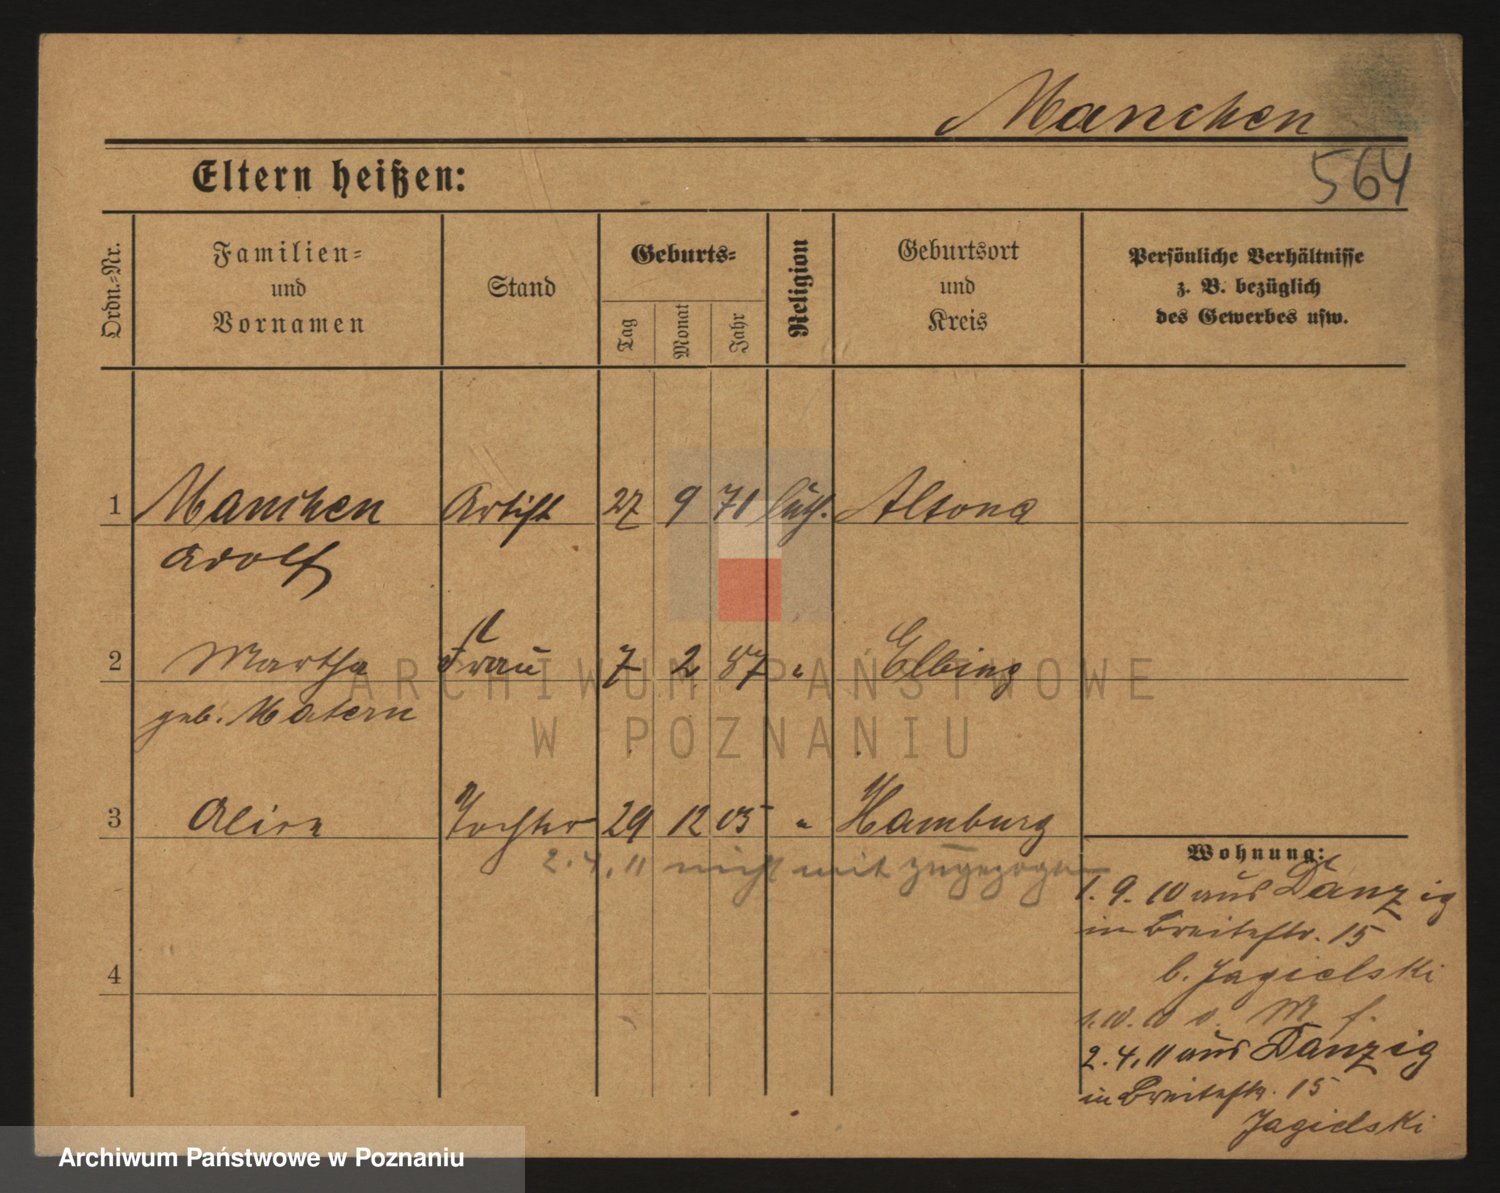 Manchen
564
Eltern heißen:
Ordn.-Nr.
Familien-
und
Vornamen
Stand
Geburts-
Tag
Monat
Jahr
Religion
Geburtsort
und
Kreis
Persönliche Verhältnisse
z. B. bezüglich
des Gewerbes usw.
1 Manchen Artist 27 9 71 luth. Altona
Adolf
2 Martha Frau 7 2 87 " Elbing
geb. Matern
3 Alice Tochter 29 12 05 " Hamburg
2.4.11 nicht mit zugezogen
4
Wohnung:
1. 9. 10 aus Danzig
in Breitestr. 15
b. Jagielski
1.10.10
2.4.11 aus Danzig
in Breitestr. 15
Jagielski
ARCHIWUM PAŃSTWOWE
W POZNANIU
Archiwum Państwowe w Poznaniu